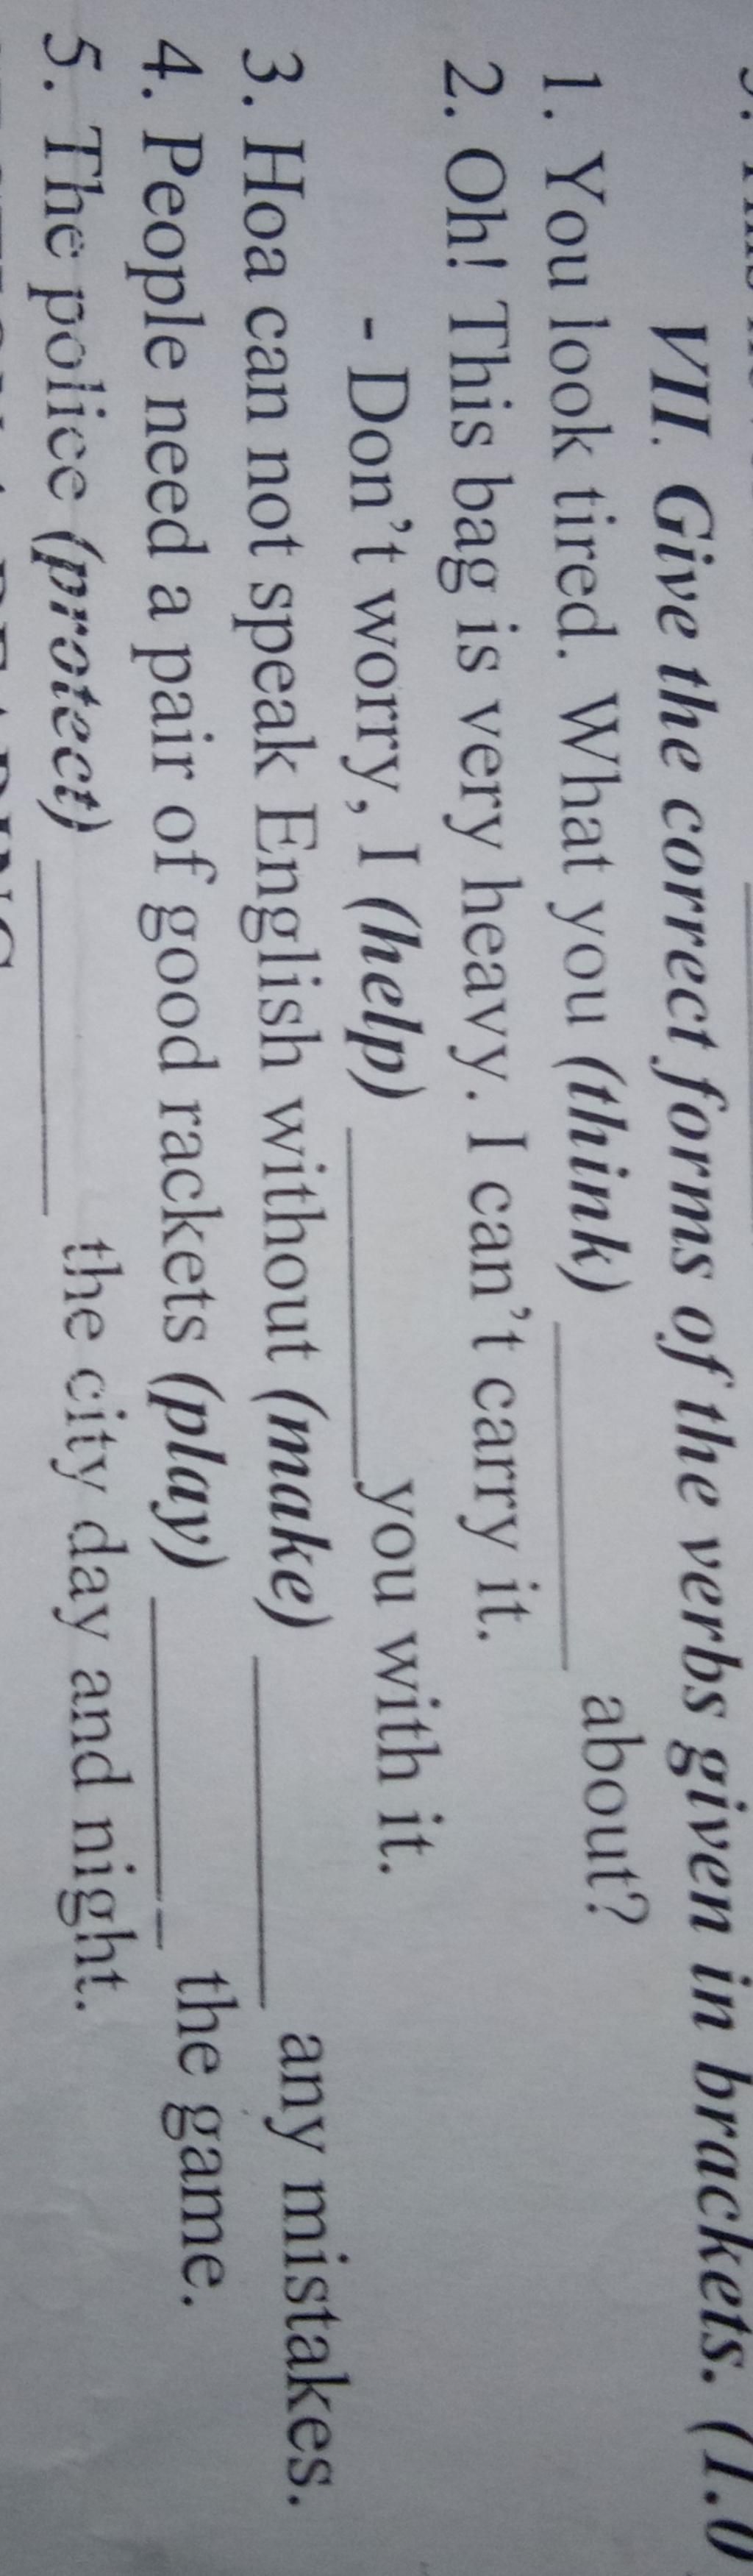 VII. Give the correct forms of the verbs given in brackets. (1.0
1. You look tired. What you (think) __________ about?
2. Oh! This bag is very heavy. I can't carry it.
- Don't worry, I (help) __________ you with it.
3. Hoa can not speak English without (make) __________ any mistakes.
4. People need a pair of good rackets (play) __________ the game.
5. The police (protect) __________ the city day and night.